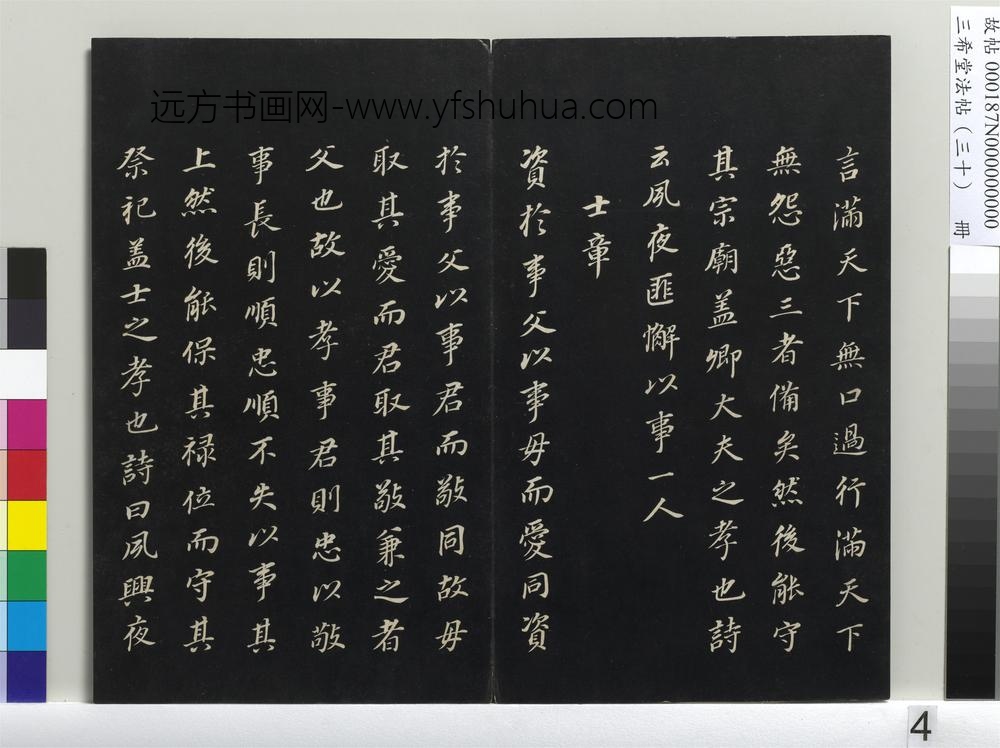 言滿天下無口過行滿天下
無怨惡三者備矣然後能守
其宗廟盖卿大夫之孝也詩
云夙夜匪懈以事一人
士章
資於事父以事母而愛同資
於事父以事君而敬同故母
取其愛而君取其敬兼之者
父也故以孝事君則忠以敬
事長則順忠順不失以事其
上然後能保其禄位而守其
祭祀盖士之孝也詩曰夙興夜
远方书画网-www.yfshuhua.com
故帖 000187N000000000
三希堂法帖（三十） 冊
4